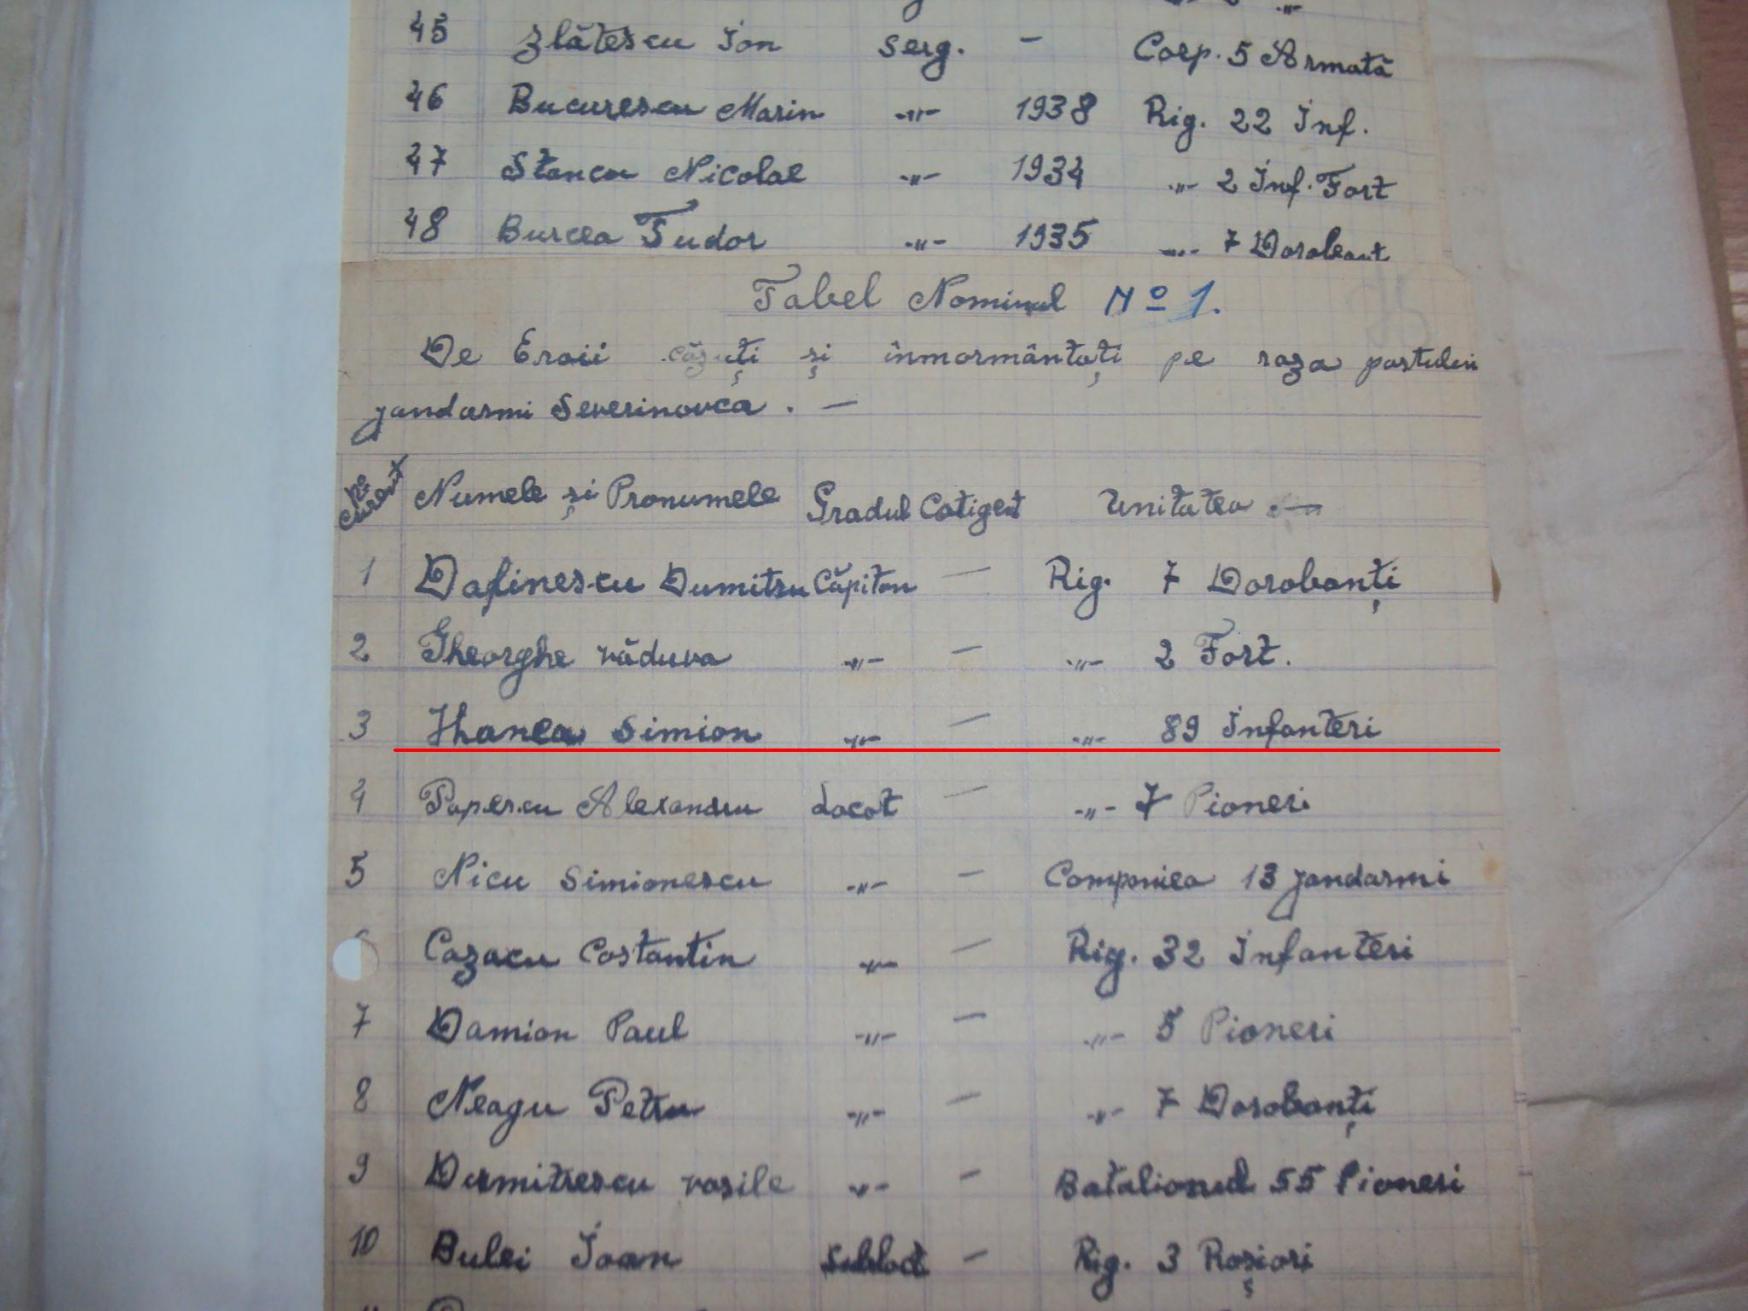 45 Zlătescu Ion Serg. - Corp. 5 Armată
46 Bucurescu Marin -"- 1938 Rig. 22 Inf.
47 Stancu Nicolae -"- 1934 -"- 2 Inf. Fort
48 Burcea Tudor -"- 1935 -"- 7 Dorobanț
Tabel Nominal No 1.
De Eroii căzuți și înmormântați pe raza postului
jandarmi Severinovca. —
No curent Numele și Pronumele Gradul Cotigent Unitatea —
1 Dafinescu Dumitru Căpitan — Rig. 7 Dorobanți
2 Gheorghe văduva -"- — -"- 2 Fort.
3 Hanea Simion -"- — -"- 89 Infanteri
4 Popescu Alexandru Locot — -"- 7 Pioneri
5 Nicu Simionescu -"- — Compania 13 jandarmi
6 Cazacu Costantin -"- — Rig. 32 Infanteri
7 Damion Paul -"- — -"- 5 Pioneri
8 Neagu Petru -"- — -"- 7 Dorobanți
9 Dumitrescu vasile -"- — Batalionul 55 Pioneri
10 Bulei Ioan Subloct — Rig. 3 Roșiori